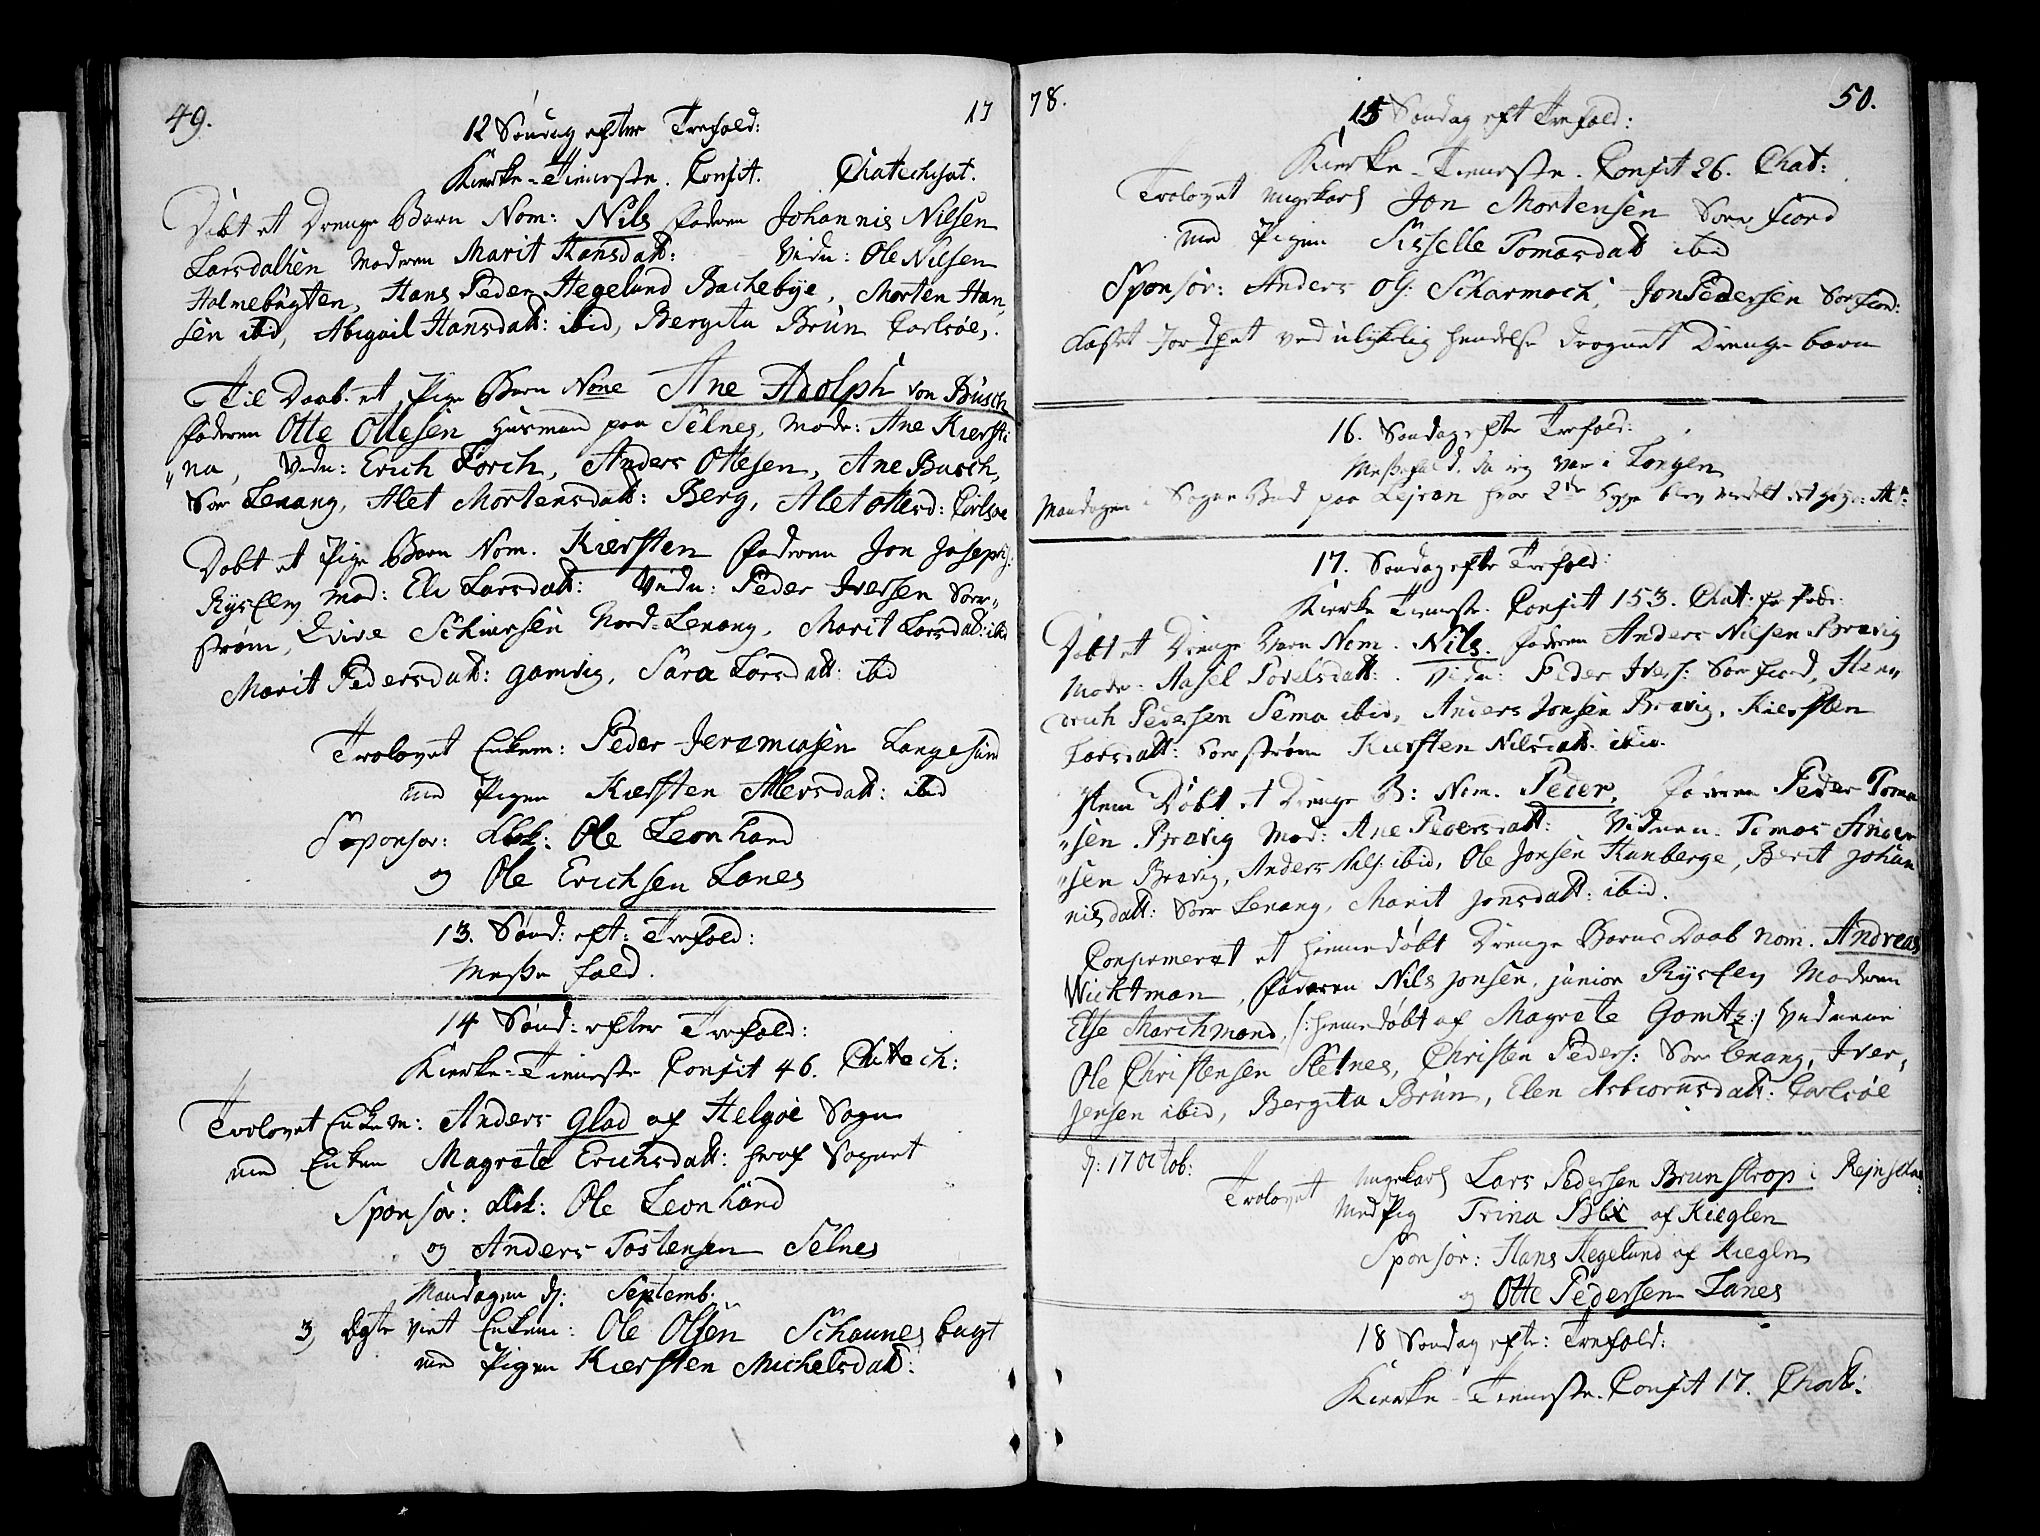 49. 17
12 Søndag efter Trefold:
Kierke-Tieneste. Confit. Chatechisat.
Døbt et Drenge Barn Nom: Nils Faderen Johannis Nilsen
Larsdalsen Moderen Marit Hansdatt: Vidn: Ole Nilsen
Holmebugten, Hans Peder Hegelund Bachebye, Morten Han,
sen ibid, Abigail Hansdatt: ibid, Bergita Brun Carlsøe.
Til Daab et Pige Barn None Ane Adolph von Busch
Faderen Otte Ottesen Husmand paa Selnes, Mode: Ane Kiersti
"na, Vidn: Erich Lorch, Anders Ottesen, Ane Busch,
Sør Lenang, Alet Mortensdatt: Berg, Alet Ottesd: Carlsøe
Døbt et Pige Barn Nom. Kiersten Faderen Jon Joseph:
Mod: Eli Larsdatt: Vidn: Peder Iversen Sør-
strøm, Schiersen Nord-Lenang, Marit Larsdatt: ibid
Marit Pedersdatt: Gamvig, Sara Larsdatt: ibid
Trolovet Enkem: Peder Jeremiasen Langesund
med Pigen Kiersten Alersdatt: ibid
Sponsor: Klok: Ole Leonhard
og Ole Erichsen Lanes
13. Sønd: eft: Trefold:
Messe fald.
14 Sønd: efter Trefold:
Kierke-Tieneste Confit 46. Chatech:
Trolovet Enkem: Anders Glad af Helgøe Sogn
med Enken Magrete Erichsdatt: her af Sognet
Sponsor: Klok: Ole Leonhard
og Anders Tostensen Selnes
Mandagen d: Septemb:
3, Ægte viet Enkem: Ole Olsen Schaunes bugt
med Pigen Kiersten Michelsdatt:
78. 50.
15 Søndag eft Trefold:
Kierke-Tieneste. Confit 26. Chat:
Trolovet ungkarl Jon Mortensen Sørfiord
med Pigen Sisselle Tomasdatt ibid
Sponsor: Anders Ols: Scharmoch, Jon Pedersen Sørfiord:
Kastet Jord paa et ved ulykelig hendelse Drenge barn
16. Søndag efter Trefold:
Messefald, da ieg var i Tongen
Mandagen i Sogne Bud paa Lejran hvor 2de Syge blev
17. Søndag efter Trefold:
Kierke Tieneste. Confit 153. Chat:
Døbt et Drenge Barn Nom. Nils. Faderen Anders Nilsen Bravig
Mode: Aasel Povelsdatt: Vidn: Peder Ivers: Sørfiord, Hen,
drich Pedersen Tema ibid, Anders Jonsen Bravig, Kiersten
Larsdatt: Sørstrøm Kiersten Nilsdatt. ibid.
Item Døbt et Drenge B: Nom. Peder, Faderen Peder Toma
"sen Bravig Mod: Ane Pedersdatt: Vidnen: Tomas Ander
"sen Bravig, Anders Nils: ibid, Ole Jonsen Hanberge, Berit Johan
nisdatt: Sør Lenang, Marit Jonsdatt: ibid.
Confirmeret et hiemmedøbt Drenge Barns Daab nom. Andreas
Wichtman, Faderen Nils Jonsen, junior Moderen
Else Marchmand, /:hiemmedøbt af Magrete Gomtz:/ Vidnene
Ole Christensen Sletnes, Christen Peders: Sør Lenang, Iver,
Jensen ibid, Bergita Brun, Elen Asbiornsdatt: Carlsøe
d: 17 Octob:
Trolovet ungkarl Lars Pedersen Brunstrop i
Med Pig Trina Blix af Kieglen
Sponsor: Hans Hegelund af Kieglen
og Otte Pedersen Lanes
18 Søndag eft: Trefold:
Kierke-Tieneste. Confit 17. Chat: